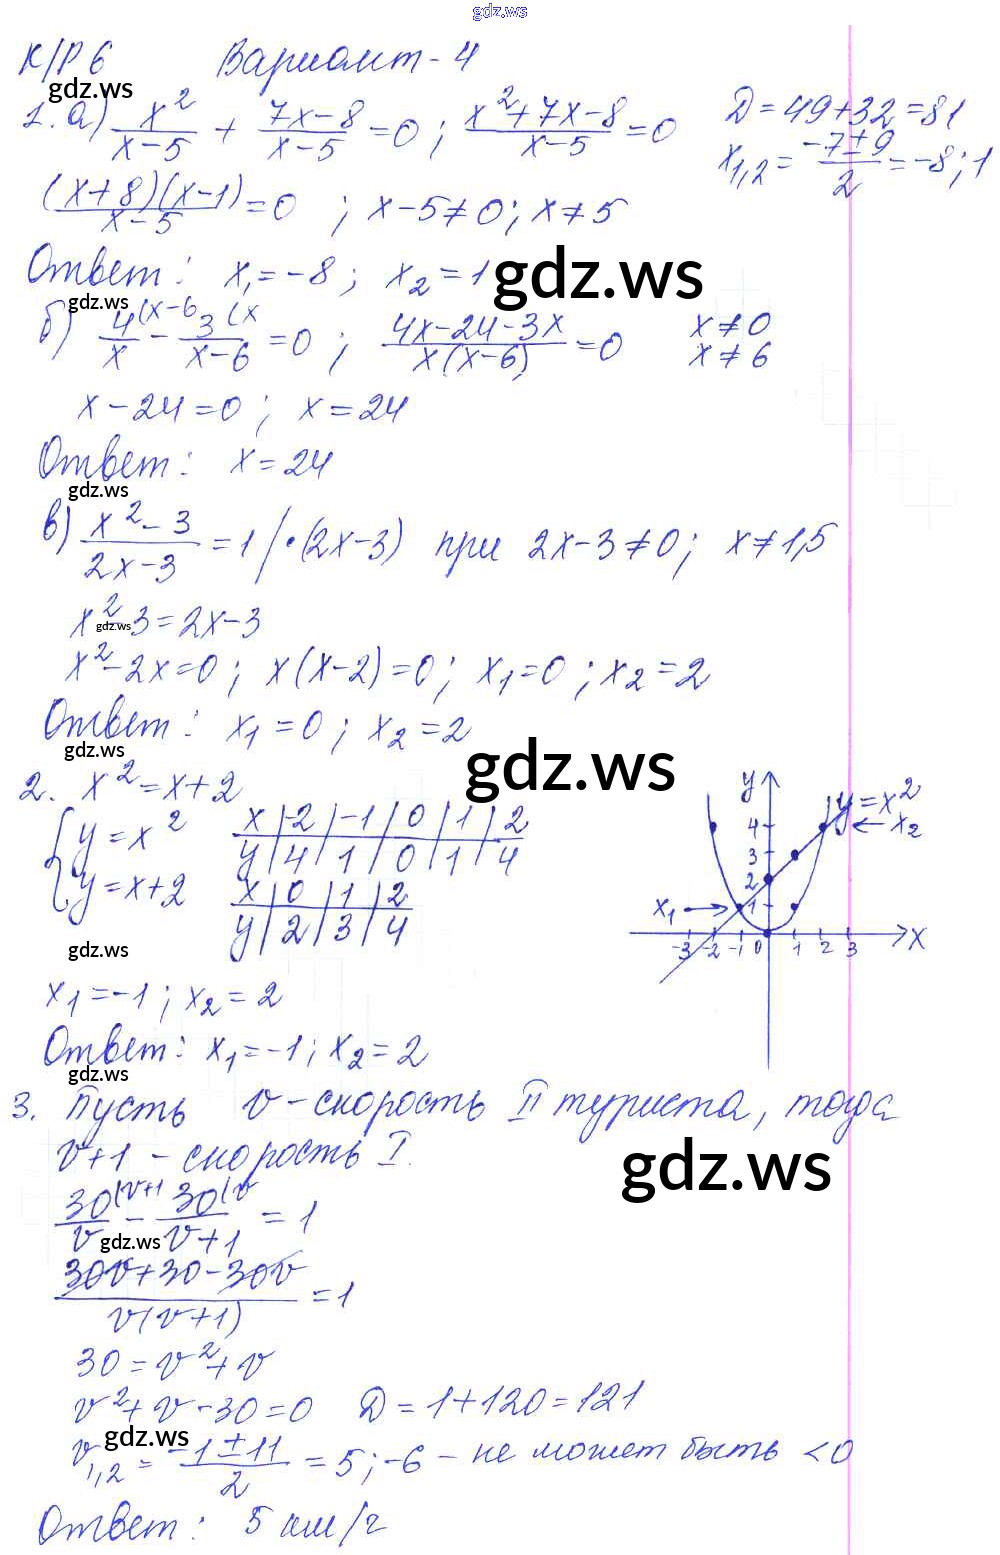 gdz.ws
К/Р 6 Вариант-4
gdz.ws
1. а) x²/(x-5) + (7x-8)/(x-5) = 0 ; (x²+7x-8)/(x-5) = 0 D = 49+32 = 81
x₁,₂ = (-7±9)/2 = -8; 1
(x+8)(x-1)/(x-5) = 0 ; x-5≠0; x≠5
Ответ: x₁ = -8 ; x₂ = 1
gdz.ws
gdz.ws
б) 4(x-6/x - 3(x/(x-6) = 0 ; (4x-24-3x)/(x(x-6)) = 0 x≠0
x≠6
x-24=0 ; x=24
Ответ: x=24
gdz.ws
в) (x²-3)/(2x-3) = 1 /·(2x-3) при 2x-3≠0; x≠1,5
x²-3=2x-3
gdz.ws
x²-2x=0 ; x(x-2)=0; x₁=0 ; x₂=2
Ответ: x₁=0 ; x₂=2
gdz.ws
gdz.ws
2. x²=x+2
{ y=x² x | -2 | -1 | 0 | 1 | 2
y | 4 | 1 | 0 | 1 | 4
y=x+2 x | 0 | 1 | 2
y | 2 | 3 | 4
gdz.ws
y y=x²
4 ← x₂
3
2
x₁ → 1
-3 -2 -1 0 1 2 3 x
x₁=-1 ; x₂=2
Ответ: x₁=-1; x₂=2
gdz.ws
3. Пусть v-скорость II туриста, тогда
v+1 - скорость I.
gdz.ws
30(v+1/v - 30(v/(v+1) = 1
gdz.ws
(30v+30-30v)/(v(v+1)) = 1
30=v²+v
v²+v-30=0 D=1+120=121
gdz.ws
v₁,₂ = (-1±11)/2 = 5; -6 - не может быть <0
Ответ: 5 км/г